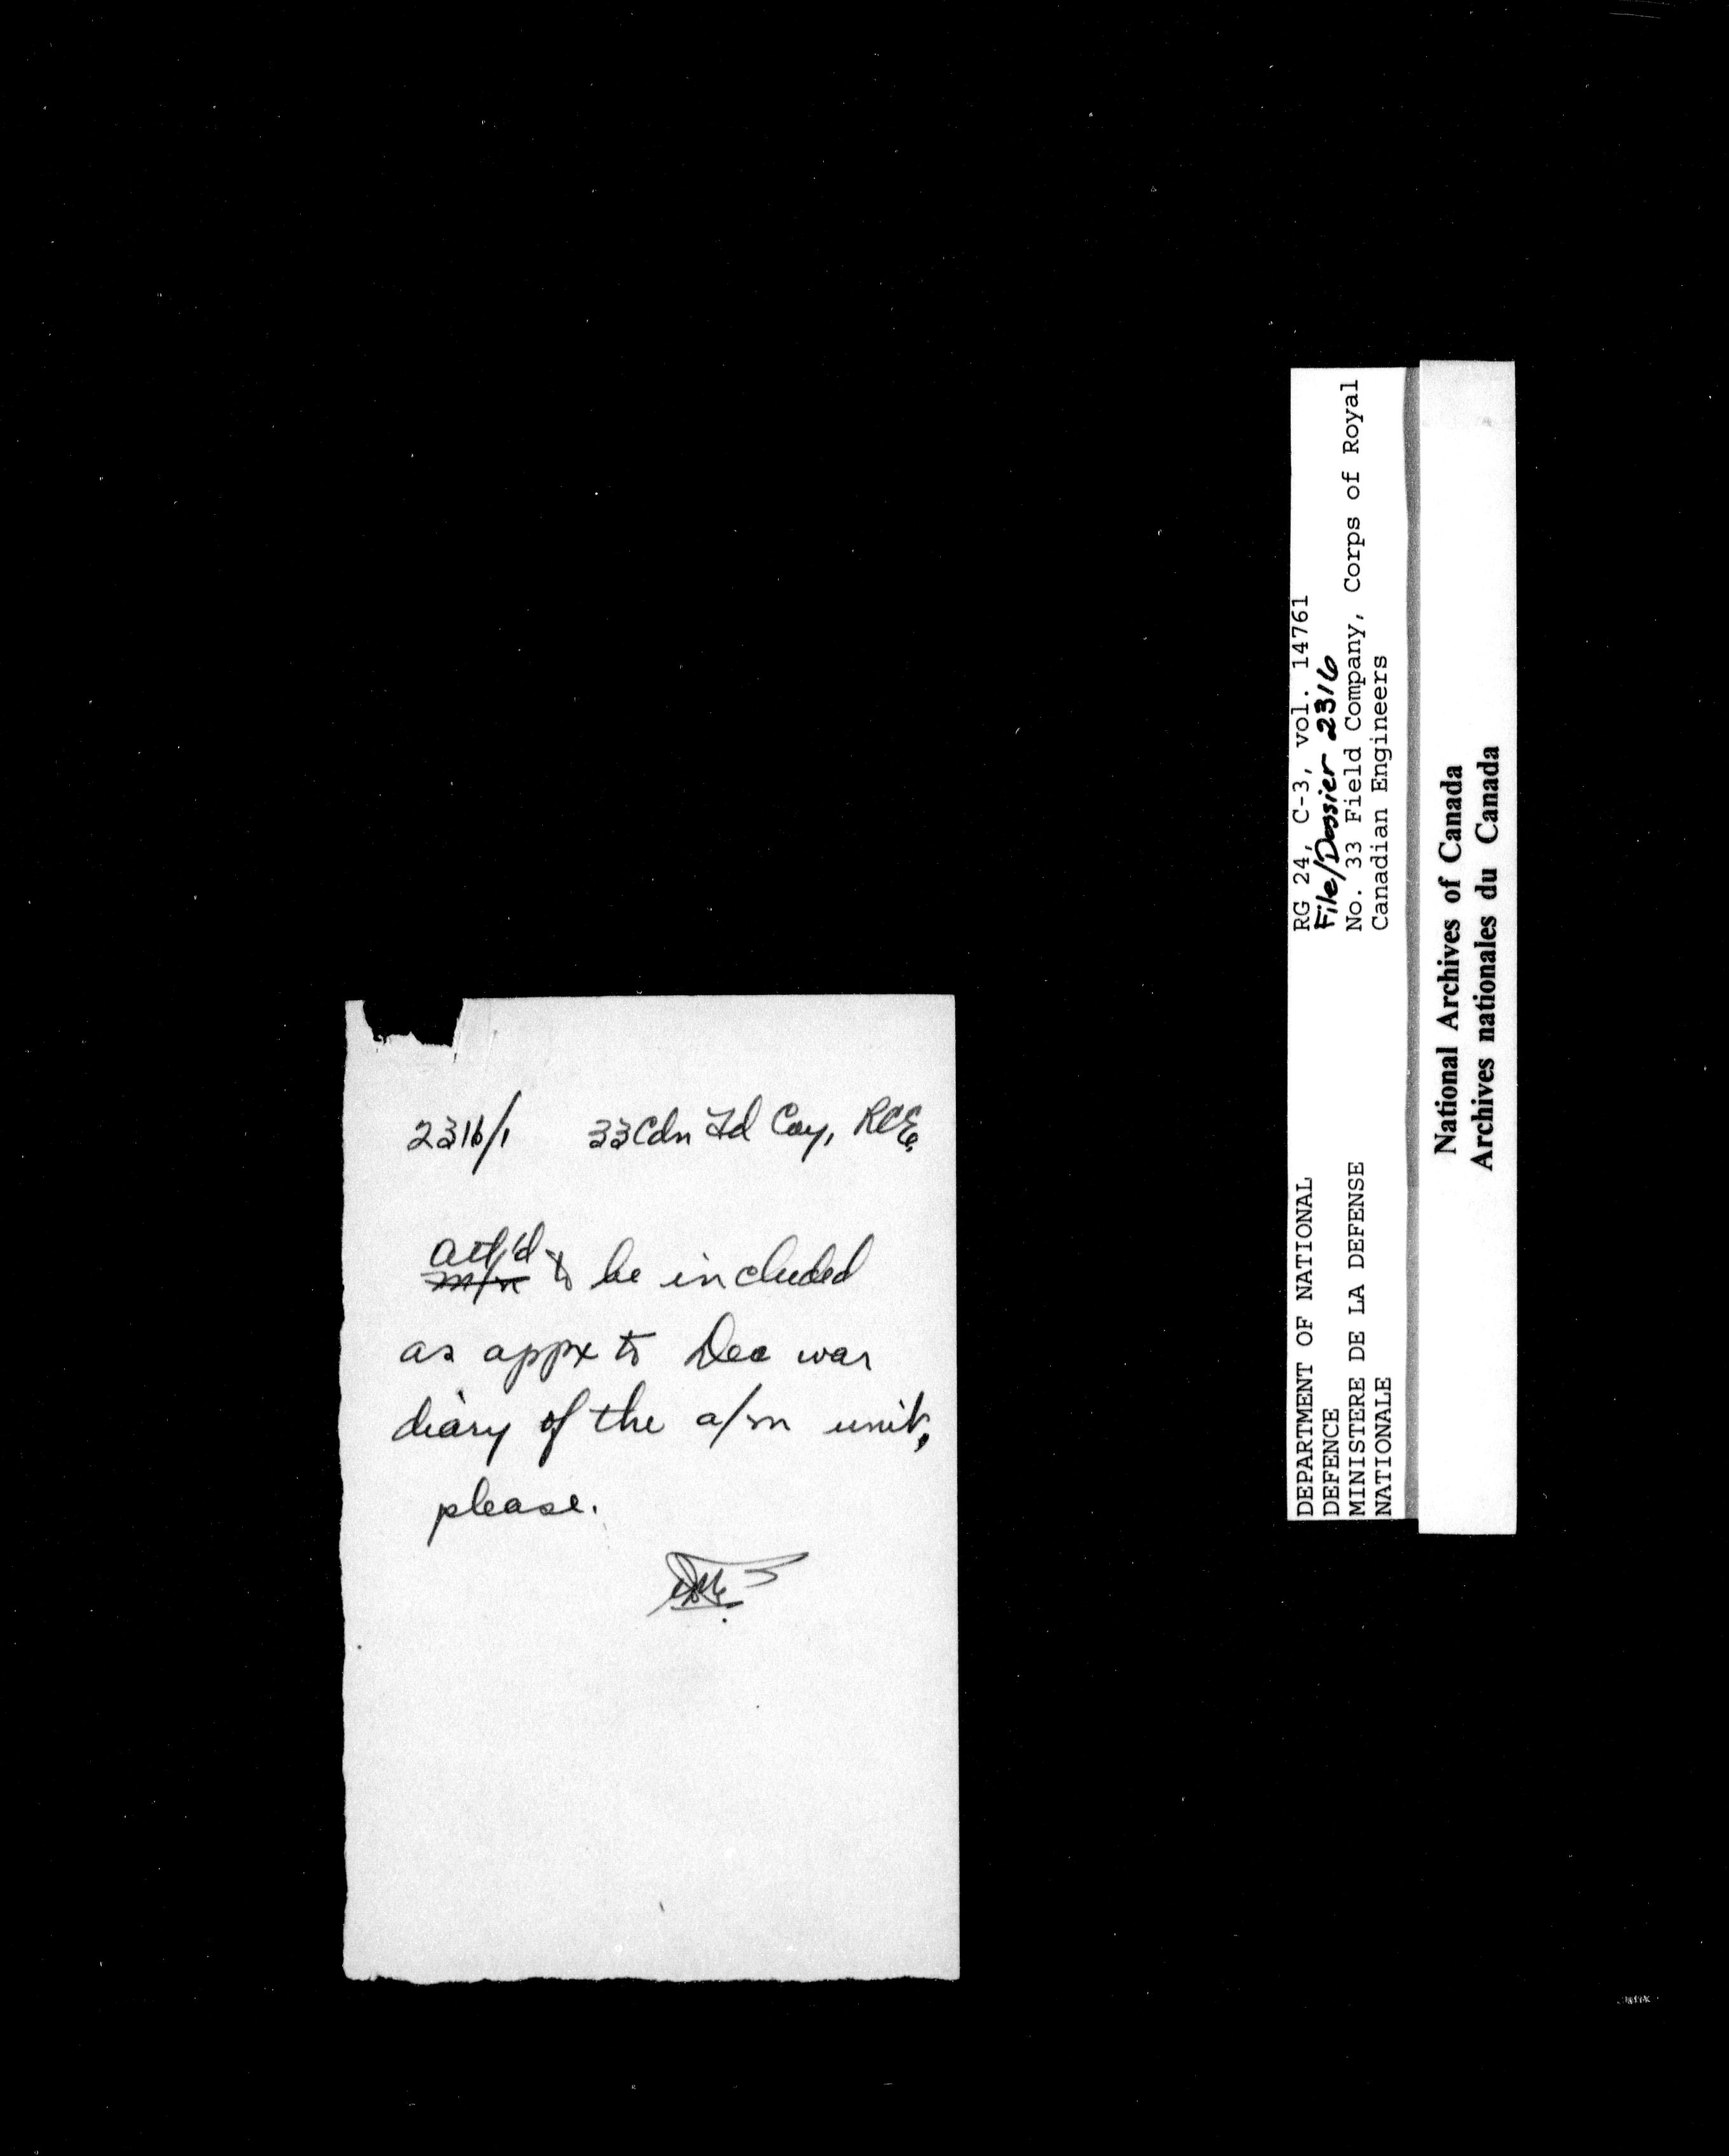 2316/1 33 Cdn Fd Coy, RCE
att'd
m/n to be included
as appx to Dec war
diary of the a/m unit,
please.
RG 24, C-3, vol. 14761
File/Dossier 2316
No. 33 Field Company, Corps of Royal
Canadian Engineers
DEPARTMENT OF NATIONAL
DEFENCE
MINISTERE DE LA DEFENSE
NATIONALE
National Archives of Canada
Archives nationales du Canada